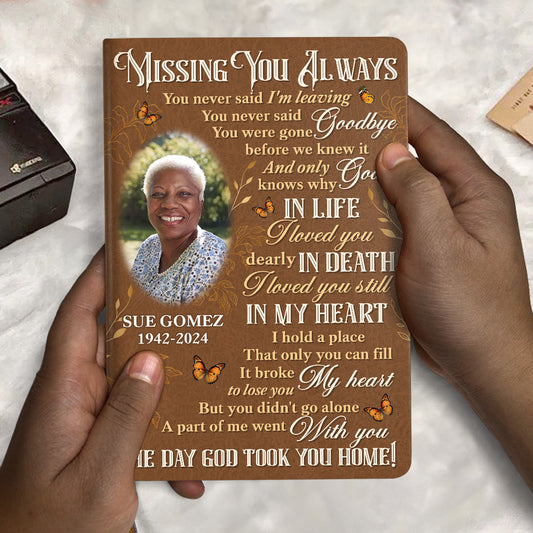 MISSING YOU ALWAYS
You never said I'm leaving
You never said Goodbye
You were gone
before we knew it
And only God
knows why
IN LIFE
I loved you
dearly IN DEATH
I loved you still
IN MY HEART
I hold a place
That only you can fill
It broke My heart
to lose you
But you didn't go alone
A part of me went With you
DAY GOD TOOK YOU HOME!
SUE GOMEZ
1942-2024